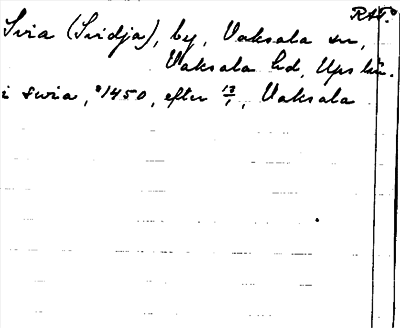 RAÄ.
Svia (Svidja), by, Vaksala sn,
Vaksala hd, Upps län.
i swia, 1450, efter 13/1, Vaksala